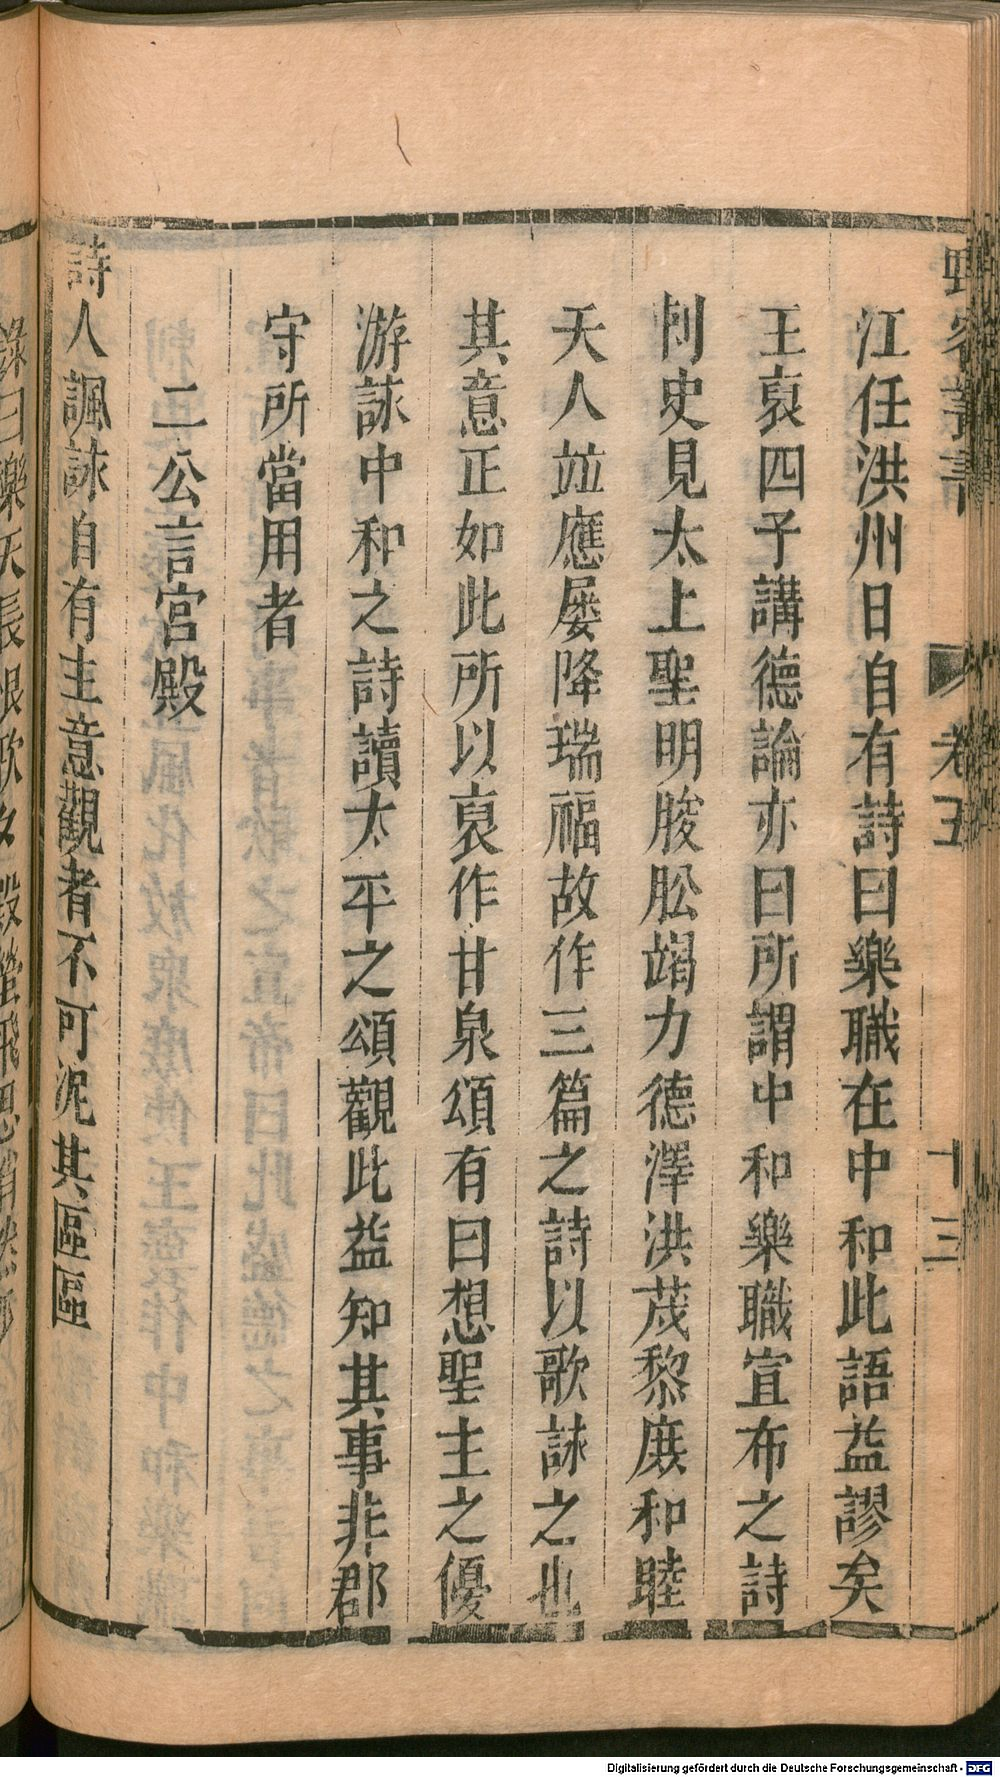 野客叢書 卷五 十三
江任洪州日自有詩曰樂職在中和此語益謬矣
王裒四子講德論亦曰所謂中和樂職宣布之詩
刺史見太上聖明股肱竭力德澤洪茂黎庶和睦
天人竝應屢降瑞福故作三篇之詩以歌詠之也
其意正如此所以裒作甘泉頌有曰想聖主之優
游詠中和之詩讀太平之頌觀此益知其事非郡
守所當用者
二公言宮殿
詩人諷詠自有主意觀者不可泥其區區
錄曰樂天長恨歌夕殿螢飛思悄然
Digitalisierung gefördert durch die Deutsche Forschungsgemeinschaft - DFG